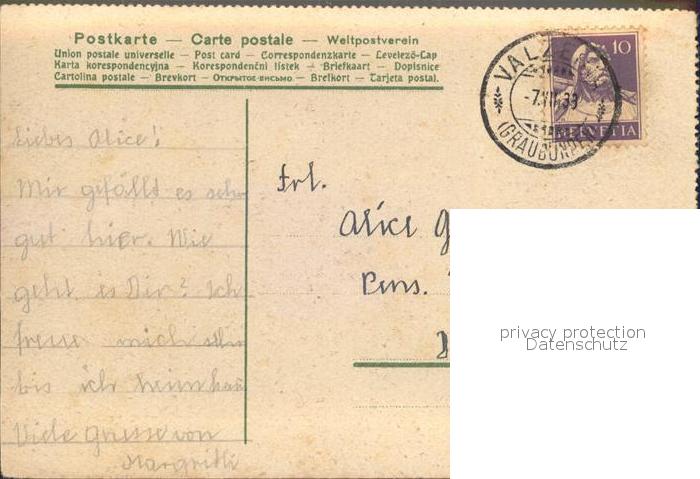 Postkarte — Carte postale — Weltpostverein
Union postale universelle — Post card — Correspondenzkarte — Levelező-Lap
Karta korespondencyjna — Korespondenční lístek — Briefkaart — Dopisnice
Cartolina postale — Brevkort — Открытое письмо — Brefkort — Tarjeta postal.
VALZEINA
10
-7.VIII.33
(GRAUBÜNDEN)
HELVETIA
Liebes Alice!
Mir gefällt es sehr
gut hier. Wie
geht es Dir? Ich
freue mich schon
bis ich heimkau
Viele Grüsse von
Margritli
Frl.
Alice G
Pens.
privacy protection
Datenschutz